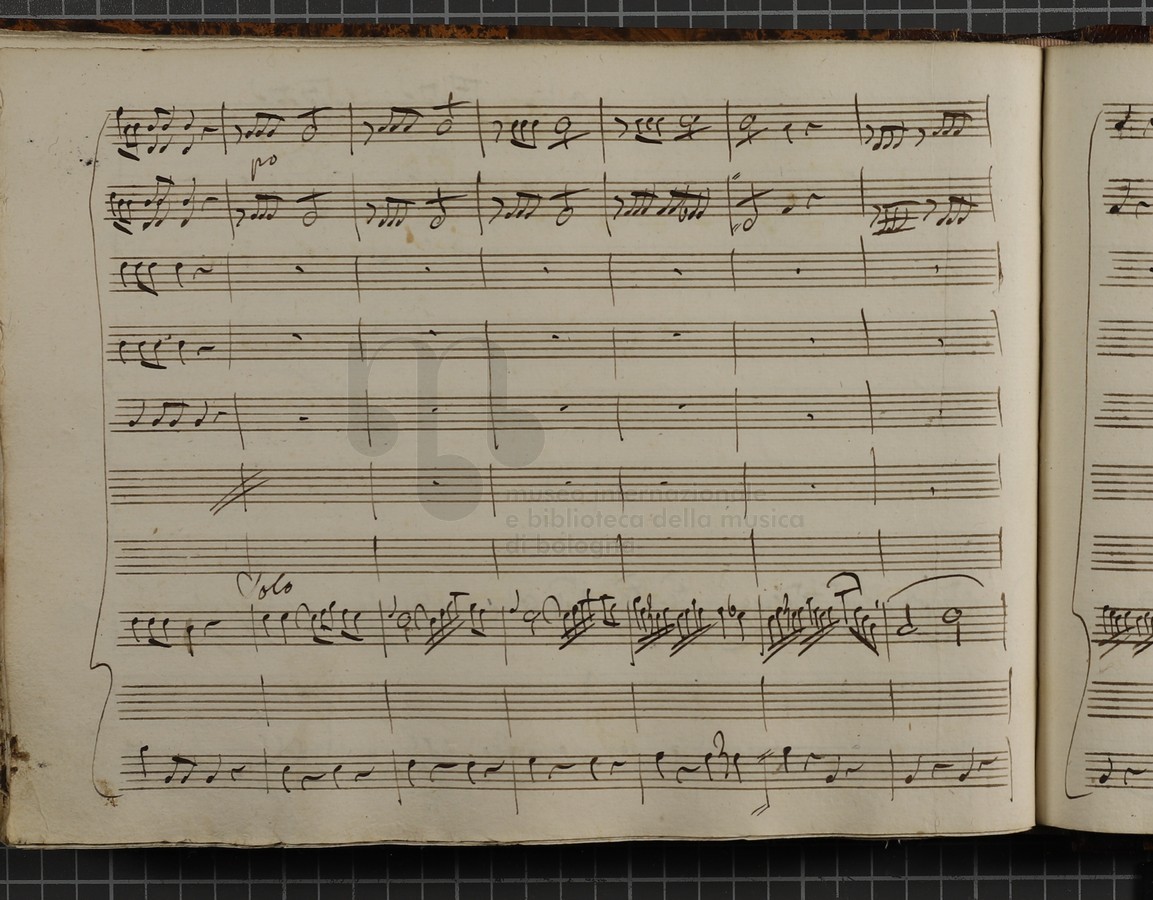 po
museo internazionale
e biblioteca della musica
di bologna
Solo